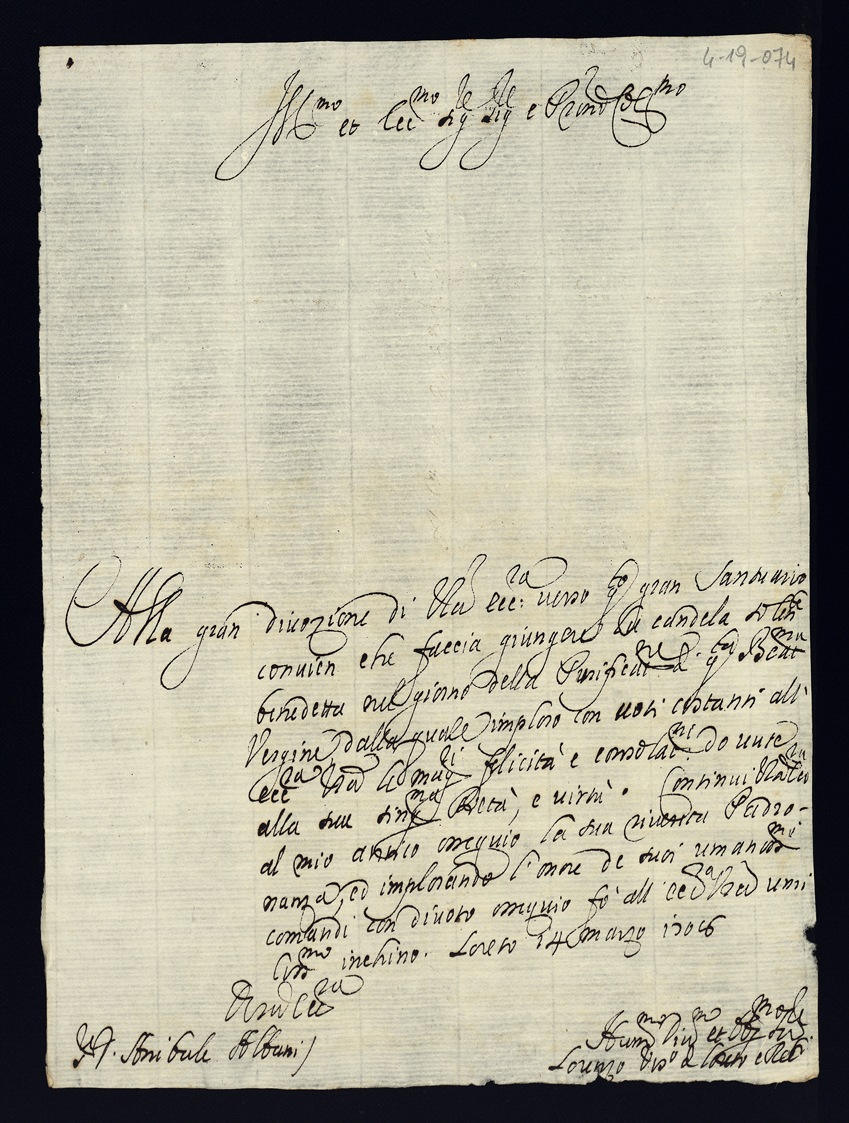 4-19-074
Ill.mo et Ecc.mo Sig.re Sig.re e Pron Col.mo
Alla gran divozione di V.ra Ecc.za verso q.o gran Santuario
convien che faccia giungere la candela
benedetta nel giorno della Purificat.ne d. q.a Beat.ma
Vergine, dalla quale imploro con voti costanti all'
Ecc.za V.ra le mag.ri felicità e consolat.ni dovute
alla sua sing.ma Pietà, e virtù. Continui V.ra Ecc.za
al mio antico ossequio la sua riverita Padro-
nanza, ed implorando l'onore de suoi umaniss.mi
comandi con divoto ossequio fò all'Ecc.za V.ra umi
liss.mo inchino. Loreto 14 marzo 1706
Di V.ra Ecc.za
D. Anibale Albani
Hum.mo Div.mo et Obl.mo Ser.re
Lorenzo Vesc.o di Loreto e Rec.ti